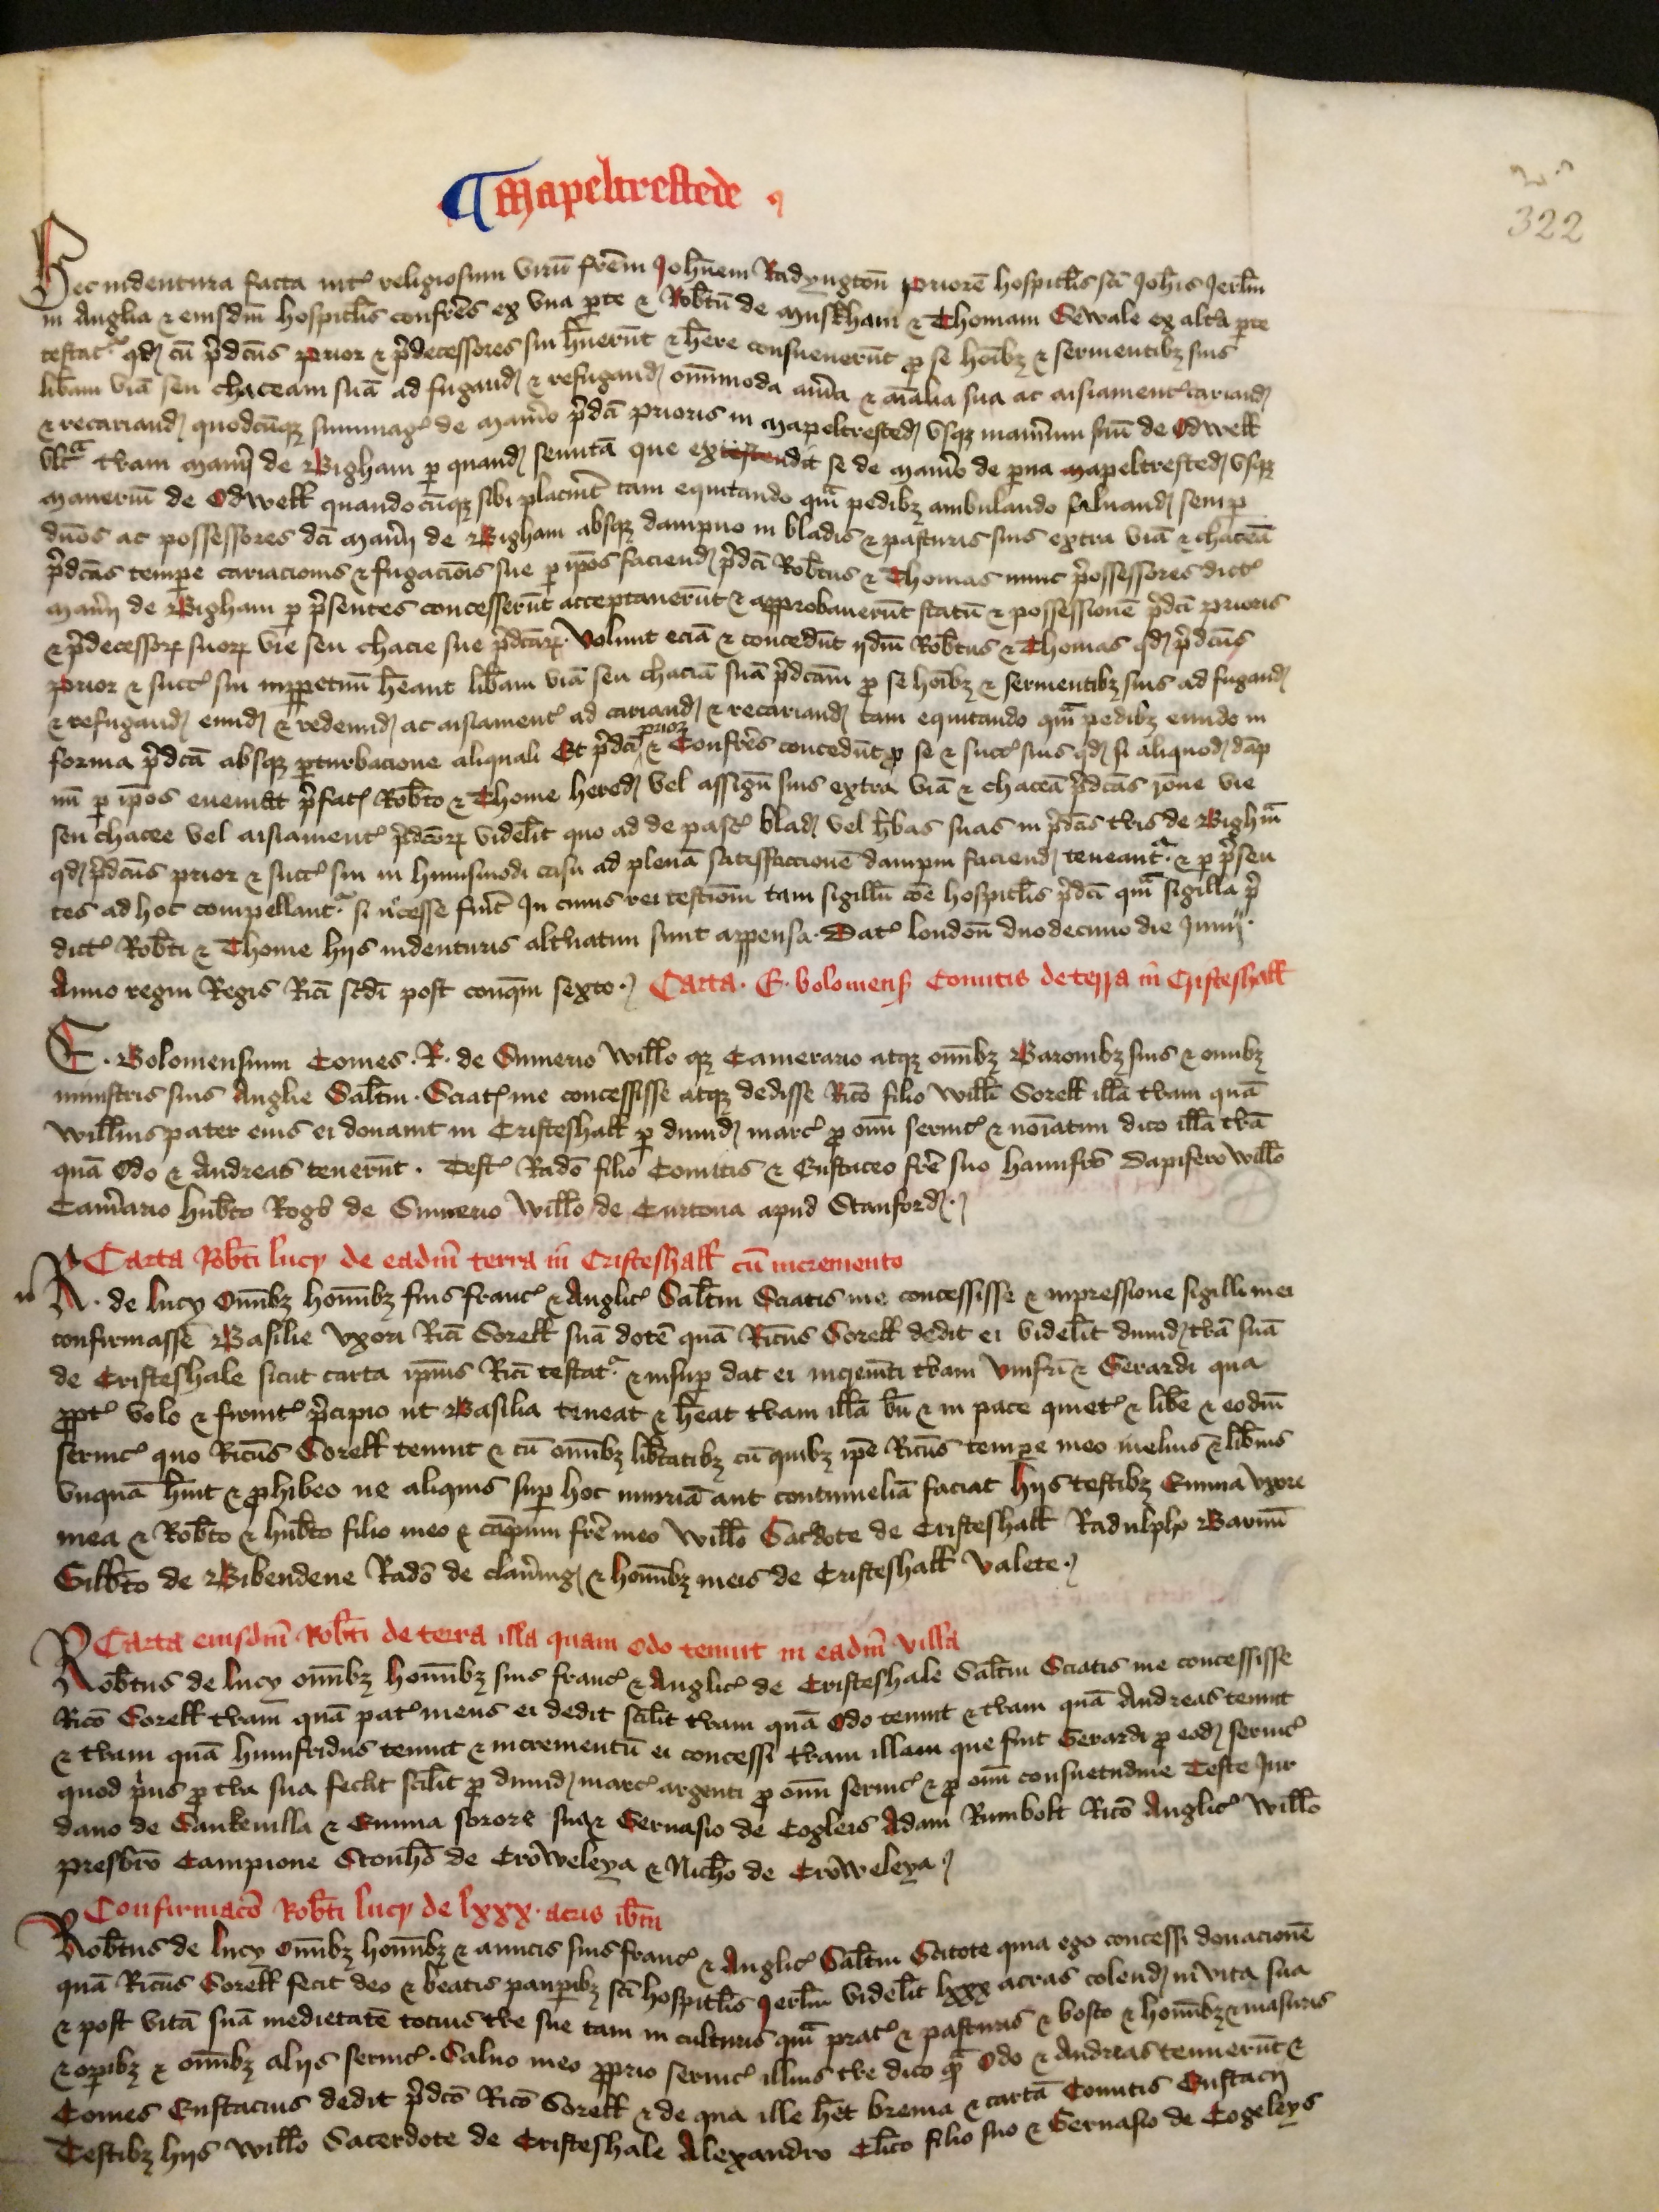 ¶ Mapeltrestede
322
Hec indentura facta int' religiosum virū frēm Joħnem Radyngton̄ Priorē hospitał sc̄i Joħis Jerłm
in Anglia ⁊ eiusdm̄ hospitał confrēs ex vna ꝑte ⁊ Roƀtū de Muskham ⁊ Thomam Sewale ex alt̄a ꝑte
testat' qd̛ cū p̄dcūs Prior ⁊ p̄decessores sui ħuerūt ⁊ ħere consueuerūt ꝓ se hoībꝫ ⁊ seruientibꝫ suis
liƀam viā seu chaceam suā ad fugand̛ ⁊ refugand̛ om̄imoda aūia ⁊ aīalia sua ac aisiament' cariand̛
⁊ recariand̛ quodcūqꝫ summag' de man̄io p̄dc̄i prioris in Mapeltrested̛ vsqꝫ man̄ium suū de Odwełł
vlt̄ᵃ t̄ram man̄ij de Bigham ꝑ quand̛ semitā que extendit se de man̄io de ꝑua Mapeltrested̛ vsqꝫ
maneriū de Odwełł quandocūqꝫ sibi placuīt tam equitando qᵃm pedibꝫ ambulando saluand̛ semꝑ
dn̄os ac possessores dc̄i man̄ij de Bigham absqꝫ dampno in bladis ⁊ pasturis suis extra viā ⁊ chaceā
p̄dcās tempe cariacionis ⁊ fugacōis sue ꝑ ip̄os faciend̛ p̄dc̄i Roƀtus ⁊ Thomas nunc p̄ossessores dict'
man̄ij de Bigham ꝑ p̄sentes concesserūt acceptauerūt ⁊ approbauerūt statū ⁊ possessionē p̄dc̄i prioris
⁊ p̄decessoꝝ suoꝝ vie seu chacie sue p̄dcāꝝ. Volunt eciā ⁊ concedūt ijdm̄ Roƀtus ⁊ Thomas qd̛ p̄dcūs
Prior ⁊ succ' sui inꝑpetuū ħeant liƀam viā seu chaciā suā p̄dcām ꝓ se hoībꝫ ⁊ seruientibꝫ suis ad fugand̛
⁊ refugand̛ eund̛ ⁊ redeund̛ ac aisiament' ad cariand̛ ⁊ recariand̛ tam equitando qᵃm pedibꝫ eundo in
forma p̄dcā absqꝫ ꝑturbacione aliquali Et p̄dc̄i prior ⁊ Confrēs concedūt ꝓ se ⁊ succ' suis qd̛ si aliquod̛ dāp
nū ꝑ ip̄os eueniat p̄fat' Roƀto ⁊ Thome hered̛ vel assign̄ suis extra viā ⁊ chaceā p̄dcās rōne vie
seu chacee vel aisiament' p̄dcōꝝ videłt quo ad depast' blad̛ vel ħbas suas in p̄dcīs t̄ris de Bighᵃm
qd̛ p̄dcūs prior ⁊ succ' sui in huiusmodi casu ad plenā satisfaccionē dampni faciend̛ teneant' ⁊ ꝑ p̄sen
tes ad hoc compellant' si n̄cesse fuīt In cuius rei testiōm tam sigillū cōe hospitał p̄dc̄i qᵃm sigilla p̄
dict' Roƀti ⁊ Thome hijs indenturis alt̄natim sunt appensa. Dat' london̄ duodecimo die Junij.
Anno regni Regis Ric̄i sc̄di post conqᵐ sexto. Carta. E. bolonieñ Comitis de terra in Cristeshałł
E. Boloniensium Comes. R. de Sumerio Wiłło qꝫ Camerario atqꝫ om̄ibꝫ Baronibꝫ suis ⁊ omibꝫ
ministris suis Anglie Sałtm. Sciat' me concessisse atqꝫ dedisse Ricō filio Wiłłi Sorełł illā t̄ram quā
Wiłłmus pater eius ei donauit in Cristeshałł ꝑ dimid̛ marc' ꝓ om̄i seruic' ⁊ noīatim dico illā t̄rā
quā Odo ⁊ Andreas tenerūt. Test' Radō filio Comitis ⁊ Eustaceo frē suo Hanufrō Dapifero Wiłło
Cam̄ario Huƀto Rog̛o de Sumerio Wiłło de Curtona apud Stanford̛.
Carta Roƀti lucy de eadm̄ terra in Cristeshałł cū incremento
R. de lucy Om̄ibꝫ hom̄ibꝫ suis franc' ⁊ Anglic' Sałtm Sciatis me concessisse ⁊ inpressione sigilli mei
confirmasse Basilie vxori Ric̄i Sorełł suā dotē quā Ric̄us Sorełł dedit ei videłt dimid̛ t̄rā suā
de Cristeshale sicut carta ip̄ius Ric̄i testat' ⁊ insuꝑ dat ei incremēti t̄ram Vmfrī ⁊ Gerardi qua
ꝓpt' volo ⁊ firmit' p̄cipio ut Basilia teneat ⁊ ħeat t̄ram illā bn̄ ⁊ in pace quiet' ⁊ liƀe ⁊ eodm̄
seruic' quo Ric̄us Sorełł tenuit ⁊ cū om̄ibꝫ liƀtatibꝫ cū quibꝫ ip̄e Ric̄us tempe meo melius ⁊ liƀius
vnquā ħuit ⁊ ꝓhibeo ne aliquis suꝑ hoc iniuriā aut contumeliā faciat hijs testibꝫ Emma vxore
mea ⁊ Roƀto ⁊ Huƀto filio meo ⁊ cāpium frē meo Wiłło Sac̄dote de Cristeshałł Radulpho Barun̄
Gilƀto de Bibendene Radō de clau̇ing̛ ⁊ hom̄ibꝫ meis de Cristeshałł Valete.
Carta eiusdm̄ Roƀti de terra illa quam Odo tenuit in eadm̄ villa
Roƀtus de lucy om̄ibꝫ hom̄ibꝫ suis franc' ⁊ Anglic' de Cristeshale Sałtm Sciatis me concessisse
Ricō Sorełł t̄ram quā pat' meus ei dedit sciłt t̄ram quā Odo tenuit ⁊ t̄ram quā Andreas tenuit
⁊ t̄ram quā Humfridus tenuit ⁊ incrementū ei concessi t̄ram illam que fuit Gerardi ꝓ eod̛ seruic'
quod p̄us ꝓ t̄ra sua fecīt sciłt ꝓ dimid̛ marc' argenti ꝓ om̄i seruic' ⁊ ꝓ om̄i consuetudine Teste Jur
dano de Sankeuilla ⁊ Emma sorore sua ⁊ Geruasio de Cogleis Adam Rumbolt Ricō Anglic' Wiłło
presƀro Campione Stonħo de Crōweleya ⁊ Nicħo de Crōweleya
Confirmacō Roƀti lucy de lxxx. acris iƀm
Roƀtus de lucy Om̄ibꝫ hom̄ibꝫ ⁊ amicis suis franc' ⁊ Anglic' Sałtm Scitote quia ego concessi donacionē
quā Ric̄us Sorełł fecit deo ⁊ beatis pauꝑibꝫ sc̄i hospitał Jerłm videłt lxxx acras colend̛ in vita sua
⁊ post vitā suā medietatē tocius t̄re sue tam in culturis qᵃm prat' ⁊ pasturis ⁊ bosco ⁊ hom̄ibꝫ ⁊ masuris
⁊ oꝑibꝫ ⁊ om̄ibꝫ alijs seruic'. Saluo meo ꝓprio seruic' illius t̄re dico qᵃ Odo ⁊ Andreas tenuerūt ⁊
Comes Eustacius dedit p̄dcō Ricō Sorełł ⁊ de qua ille ħet breuia ⁊ cartā Comitis Eustacij
Testibꝫ hijs Wiłło Sacerdote de Cristeshale Alexandro Cłico filio suo ⁊ Geruasio de Cogeleys